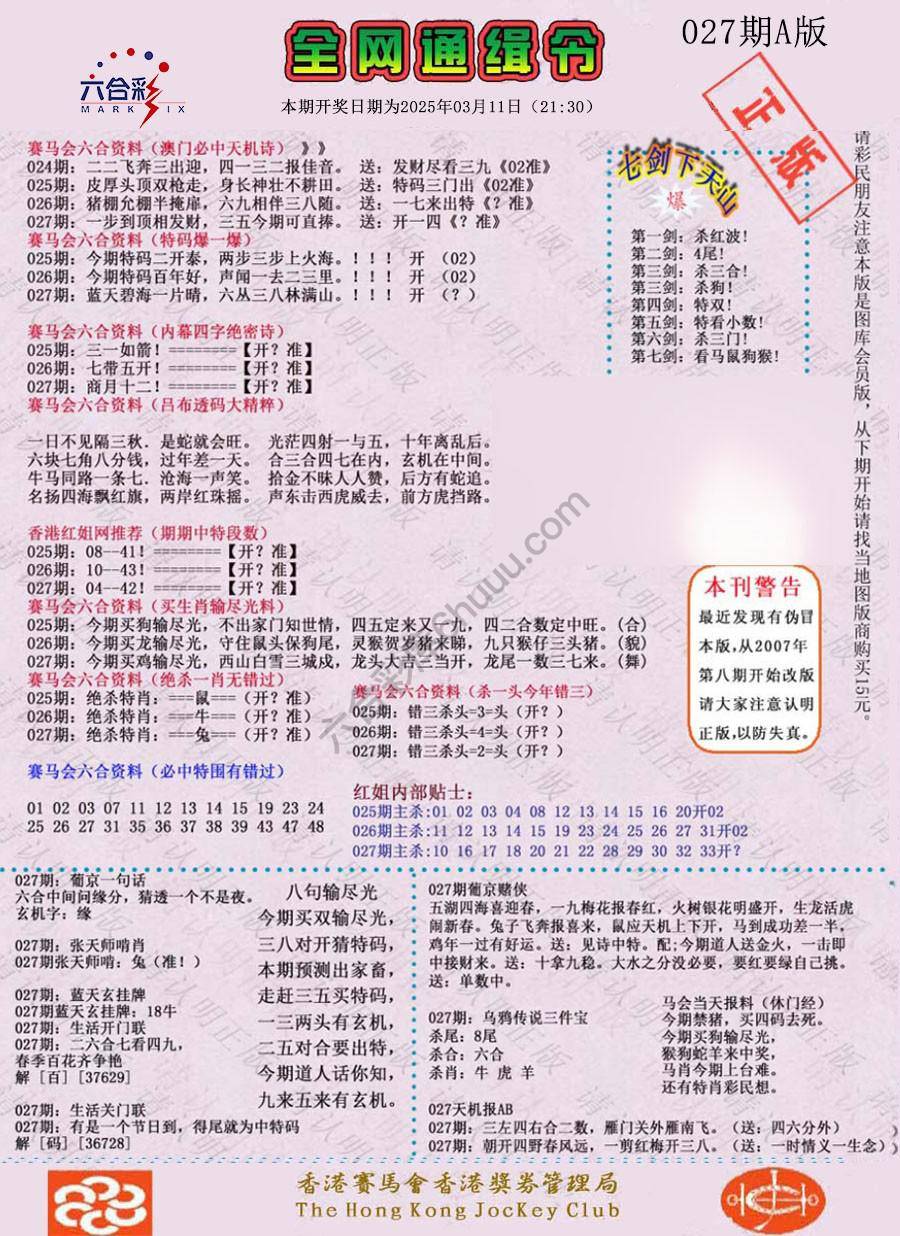 027期A版
全网通缉令
六合彩
MARK SIX
本期开奖日期为2025年03月11日（21:30）
正版
赛马会六合资料（澳门必中天机诗）》》
024期：二二飞奔三出迎，四一三二报佳音。 送：发财尽看三九《02准》
025期：皮厚头顶双枪走，身长神壮不耕田。 送：特码三门出《02准》
026期：猪棚允棚半掩扉，六九相伴三八随。 送：一七来出特《？准》
027期：一步到顶相发财，三五今期可直捧。 送：开一四《？准》
赛马会六合资料（特码爆一爆）
025期：今期特码二开泰，两步三步上火海。！！！ 开 （02）
026期：今期特码百年好，声闻一去二三里。！！！ 开 （02）
027期：蓝天碧海一片晴，六丛三八林满山。！！！ 开 （？）
赛马会六合资料（内幕四字绝密诗）
025期：三一如箭！========【开？准】
026期：七带五开！========【开？准】
027期：商月十二！========【开？准】
赛马会六合资料（吕布透码大精粹）
一日不见隔三秋．是蛇就会旺。 光茫四射一与五，十年离乱后。
六块七角八分钱，过年差一天。 合三合四七在内，玄机在中间。
牛马同路一条七．沧海一声笑。 拾金不昧人人赞，后方有蛇追。
名扬四海飘红旗，两岸红珠摇。 声东击西虎威去，前方虎挡路。
七剑下天山
爆
第一剑：杀红波！
第二剑：4尾！
第三剑：杀三合！
第三剑：杀狗！
第四剑：特双！
第五剑：特看小数！
第六剑：杀三门！
第七剑：看马鼠狗猴！
请彩民朋友注意本版是图库会员版，从下期开始请找当地图版商购买15元。
香港红姐网推荐（期期中特段数）
025期：08--41！========【开？准】
026期：10--43！========【开？准】
027期：04--42！========【开？准】
赛马会六合资料（买生肖输尽光料）
025期：今期买狗输尽光，不出家门知世情，四五定来又一九，四二合数定中旺。（合）
026期：今期买龙输尽光，守住鼠头保狗尾，灵猴贺岁猪来睇，九只猴仔三头猪。（貌）
027期：今期买鸡输尽光，西山白雪三城戍，龙头大吉三当开，龙尾一数三七来。（舞）
赛马会六合资料（绝杀一肖无错过）
025期：绝杀特肖：===鼠===（开？准）
026期：绝杀特肖：===牛===（开？准）
027期：绝杀特肖：===兔===（开？准）
赛马会六合资料（杀一头今年错三）
025期：错三杀头=3=头（开？）
026期：错三杀头=4=头（开？）
027期：错三杀头=2=头（开？）
本刊警告
最近发现有伪冒
本版，从2007年
第八期开始改版
请大家注意认明
正版，以防失真。
赛马会六合资料（必中特围有错过）
01 02 03 07 11 12 13 14 15 19 23 24
25 26 27 31 35 36 37 38 39 43 47 48
红姐内部贴士：
025期主杀：01 02 03 04 08 12 13 14 15 16 20开02
026期主杀：11 12 13 14 15 19 23 24 25 26 27 31开02
027期主杀：10 16 17 18 20 21 22 25 28 29 30 32 33开？
027期：葡京一句话
六合中间问缘分，猜透一个不是夜。
玄机字：缘
027期：张天师啃肖
027期张天师啃：兔（准！）
027期：蓝天玄挂牌
027期蓝天玄挂牌：18牛
027期：生活开门联
027期：二六合七看四九，
春季百花齐争艳
解［百］［37629］
027期：生活关门联
027期：有是一个节日到，得尾就为中特码
解［码］［36728］
八句输尽光
今期买双输尽光，
三八对开猜特码，
本期预测出家畜，
走赶三五买特码，
一三两头有玄机，
二五对合要出特，
今期道人话你知，
九来五来有玄机。
027期葡京赌侠
五湖四海喜迎春，一九梅花报春红，火树银花明盛开，生龙活虎
闹新春。兔子飞奔报喜来，鼠应天机上下开，马到成功差一半，
鸡年一过有好运。送：见诗中特。配；今期道人送金火，一击即
中接财来。送：十拿九稳。大水之分没必要，要红要绿自己挑。
送：单数中。
027期：乌鸦传说三件宝
杀尾：8尾
杀合：六合
杀肖：牛 虎 羊
马会当天报料（休门经）
今期禁猪，买四码去死。
今期买狗输尽光，
猴狗蛇羊来中奖，
马肖今期上台难。
还有特肖彩民想。
027天机报AB
027期：三左四右合二数，雁门关外雁南飞。（送：四六分外）
027期：朝开四野春风远，一剪红梅开三八。（送：一时情义一生念）
香港赛馬會香港獎券管理局
The Hong Kong JocKey Club